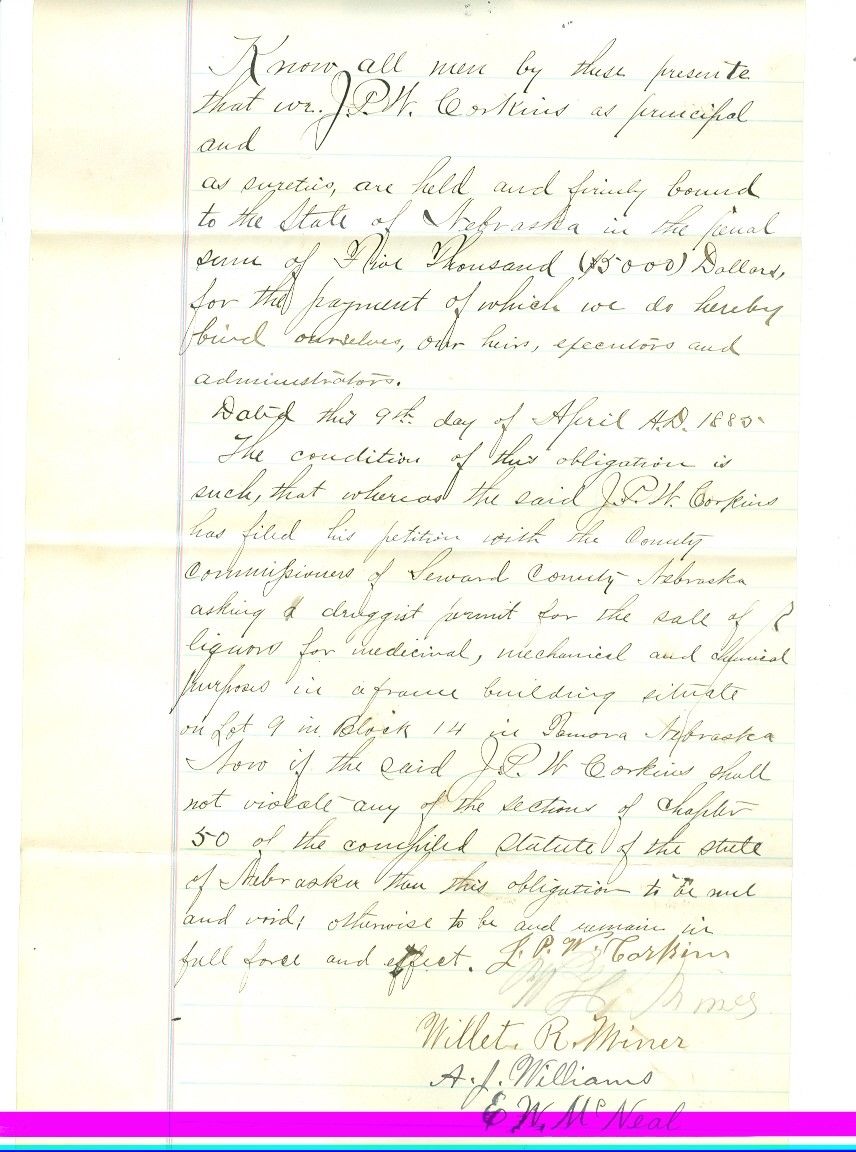 Know all men by these presents
that we. J.P.W. Corkins as principal
and
as sureties, are held and firmly bound
to the State of Nebraska in the penal
sum of Five Thousand ($5000) Dollars,
for the payment of which we do hereby
bind ourselves, our heirs, executors and
administrators.
Dated this 9th. day of April A.D. 1885
The condition of this obligation is
such, that whereas the said J.P.W. Corkins
has filed his petition with the County
Commissioners of Seward County Nebraska
asking a druggist permit for the sale of
liquors for medicinal, mechanical and chemical
purposes in a frame building situate
on Lot 9 in Block 14 in Tamora Nebraska
Now if the said J.P.W Corkins shall
not violate any of the sections of chapter
50 of the compiled Statute of the state
of Nebraska then this obligation to be null
and void; otherwise to be and remain in
full force and effect. J. P. W. Corkins
Willet. R. Miner
A. J. Williams
E W. Mc Neal